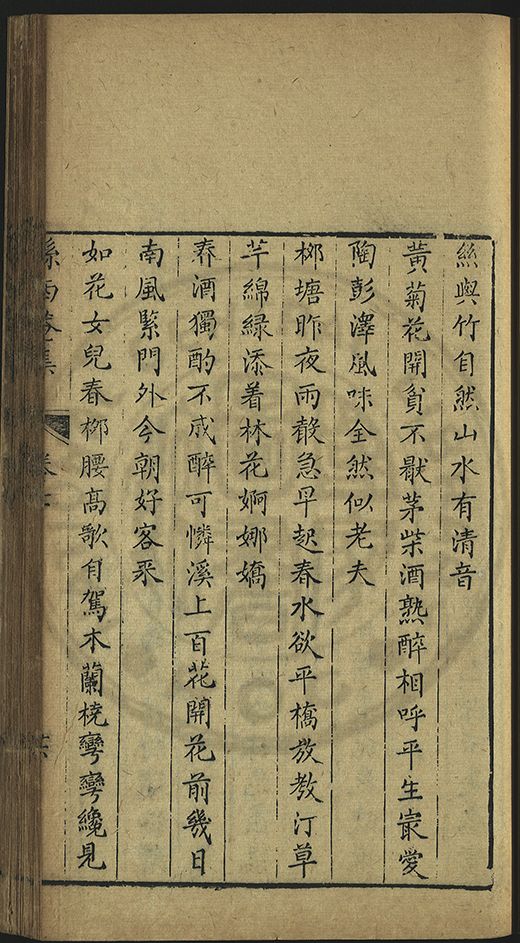 絲與竹自然山水有清音
黃菊花開貧不厭茅柴酒熟醉相呼平生㝡愛
陶彭澤風味全然似老夫
栁塘昨夜雨聲急早起春水欲平橋放教汀草
芊綿緑添着林花婀娜嬌
春酒獨酌不成醉可憐溪上百花開花前幾日
南風緊門外今朝好客來
如花女兒春栁腰髙歌自駕木蘭橈彎彎纔見